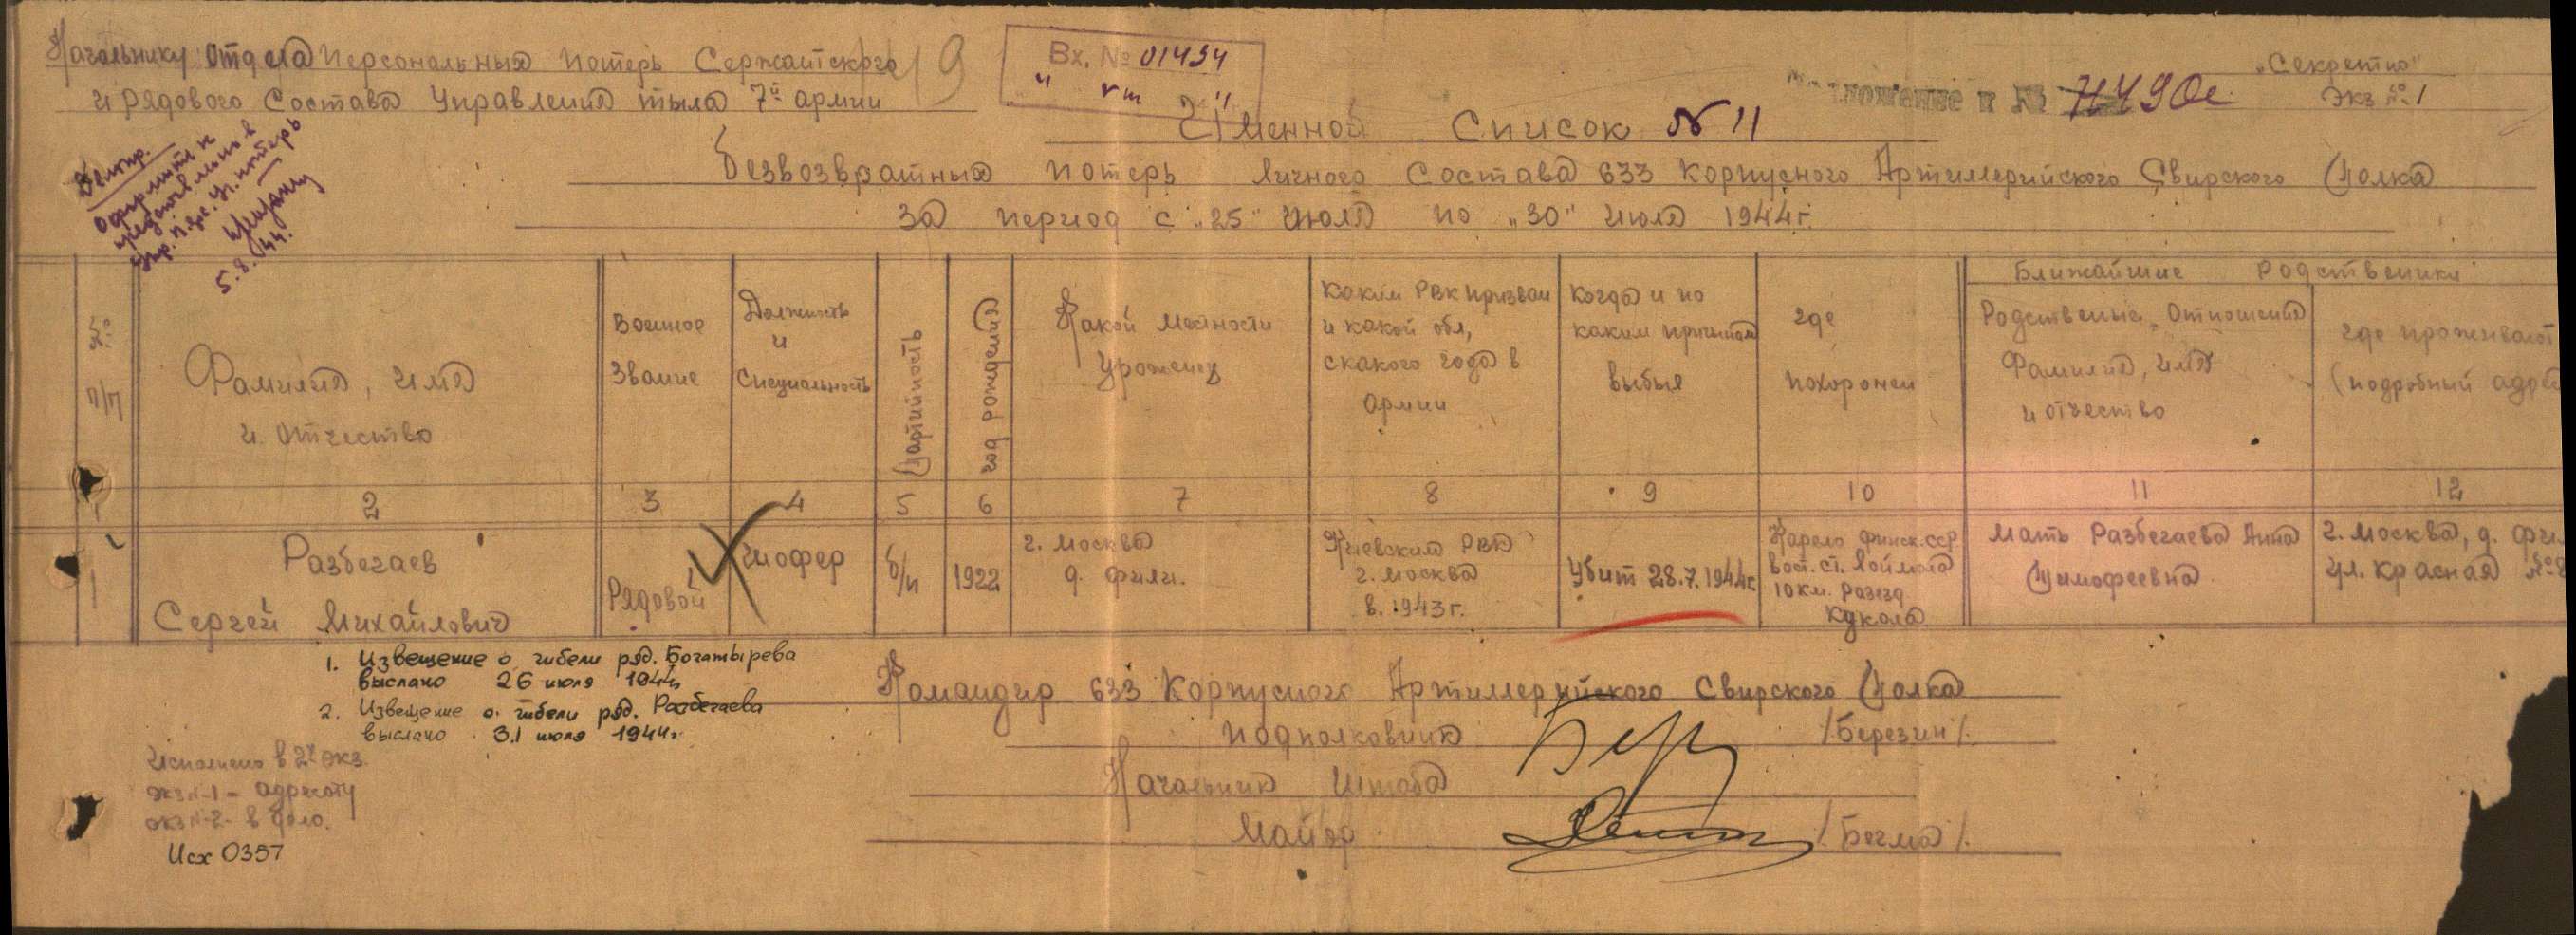 Начальнику Отдела Персональных Потерь Сержантского
и рядового Состава Управления тыла 7й армии
19
Вх. № 01434
"Секретно"
Экз № 1
к № 7490с
Именной Список № 11
Безвозвратных потерь личного Состава 633 Корпусного Артиллерийского Свирского Полка
За период с "25" Июля по "30" Июля 1944г.
5.8.44.
№ п/п
Фамилия, имя и отчество
Военное Звание
Должность и специальность
Партийность
год рождения
Какой местности Уроженец
Каким РВК призван и какой обл, с какого года в армии
Когда и по каким причинам выбыл
где похоронен
Ближайшие родственики
Родственые Отношения Фамилия, имя и отчество
где проживают (подробный адре
2 3 4 5 6 7 8 9 10 11 12
1 Разбегаев Сергей Михайлович
Рядовой
Шофер
б/п
1922
г. Москва д. фили.
Киевским РВК г. Москва в 1943г.
Убит 28.7.1944г.
Карело финск. ССР вост. ст. Лоймола 10 км. разезд Кукола
Мать Разбегаева Анна Тимофеевна
г. Москва, д. фи ул. Красная №
1. Извещение о гибели ряд. Богатырева
выслано 26 июля 1944г
2. Извещение о гибели ряд. Разбегаева
выслано 31 июля 1944г.
Командир 633 Корпусного Артиллерийского Свирского Полка
подполковник /Березин/.
Начальник Штаба
Майор /Бегма/.
Исполнено в 2х экз.
экз №-1 - адресату
экз №-2- в дело.
Исх 0357